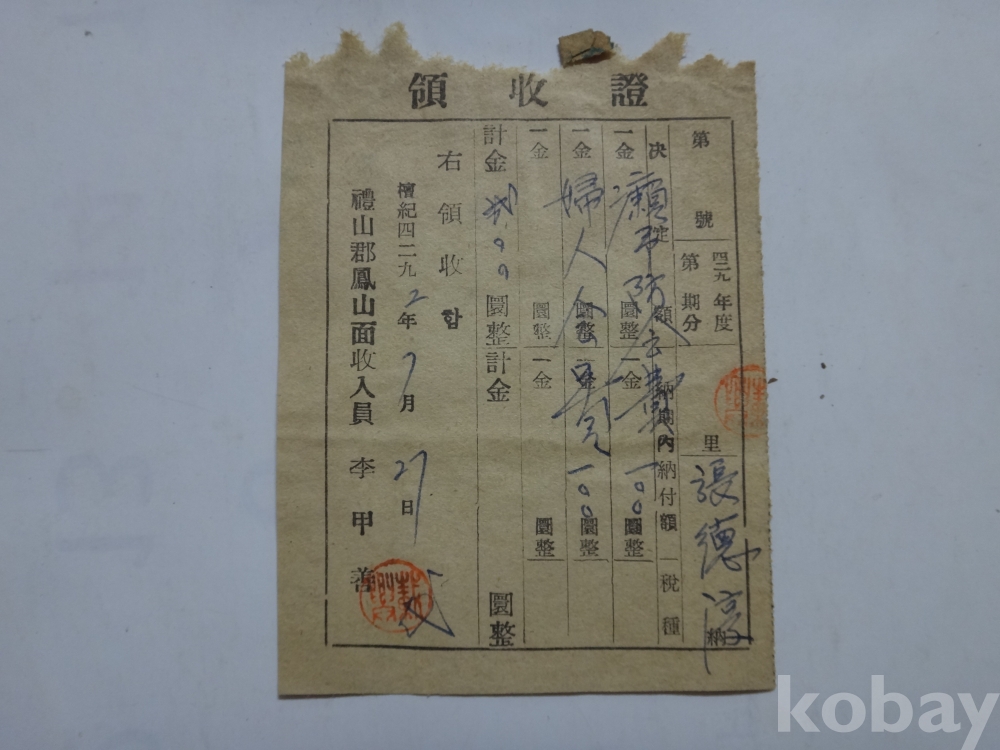 領收證
第 號
四二九 年度
第 期分
里 張德淳 納
決定額 納期內納付額 稅種
一金 癩予防 圜整 一金 一〇〇 圜整
一金 婦人会費 圜整 一金 一〇〇 圜整
一金 圜整 一金 圜整
計金 弐〇〇 圜整 計金 圜整
右領收함
檀紀四二九2年 7月 27日
禮山郡鳳山面收入員 李甲善
kobay